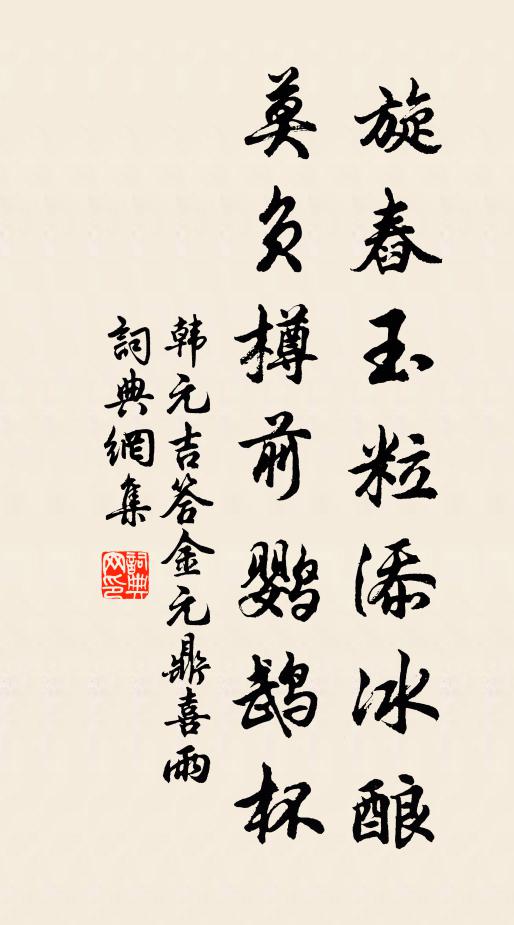 旋舂玉粒添冰酿
莫负樽前鹦鹉杯
韩元吉答金元鼎喜雨
詞典網集
詞典網印